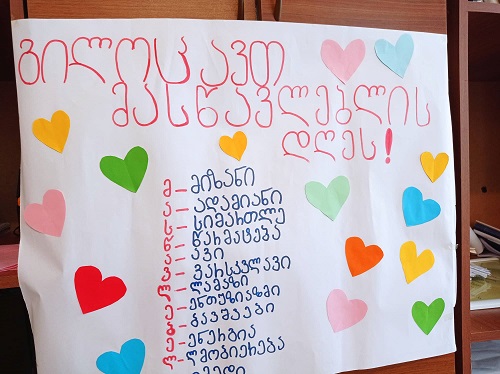 გილოცავთ
მასწავლებლის
დღეს!
მ – მიზანი
ა – ადამიანი
ს – სიმართლე
წ – წარმატება
ა –
ვ – ვარსკვლავი
ლ – ლამაზი
ე – ენთუზიაზმი
ბ – ბავშვები
ე – ენერგია
ლ – ლმობიერება